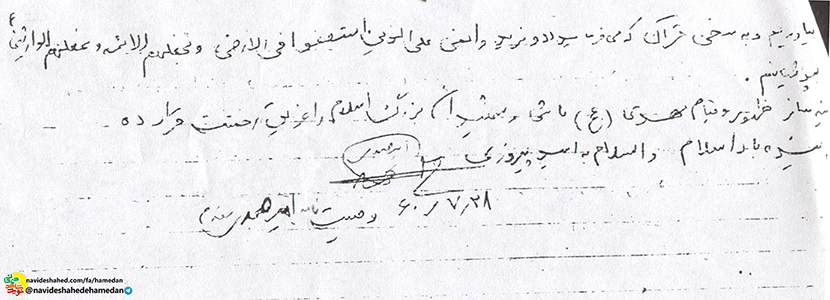 ۴
بیاوریم و به سخن قرآن که می فرماید و نرید و ان نمن علی الذین استضعفوا فی الارض و نجعلهم الائمه و نجعلهم الوارثین
بپوشانیم.
ظهور و قیام مهدی (عج) باشی و شهیدان بزرگ اسلام را غریق رحمتت قرار ده
زنده باد اسلام والسلام به امید پیروزی
امیر محمدی
۶۰/۷/۲۸
وصیت نامه امیر محمدی
navideshahed.com/fa/hamedan
@navideshahedehamedan